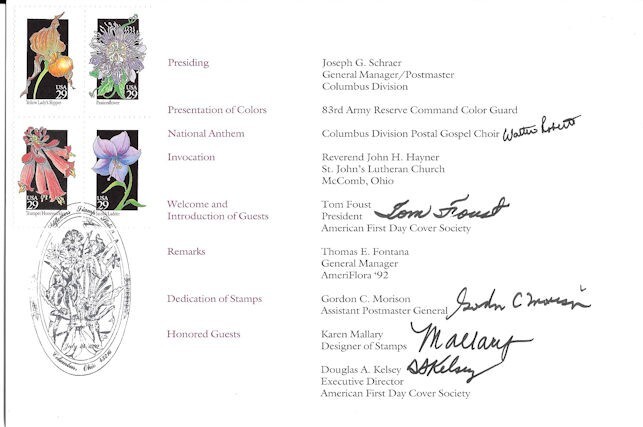 USA
29
Yellow Lady's Slipper
USA
29
Passionflower
USA
29
Trumpet Honeysuckle
USA
29
Presiding
Joseph G. Schraer
General Manager/Postmaster
Columbus Division
Presentation of Colors
83rd Army Reserve Command Color Guard
National Anthem
Columbus Division Postal Gospel Choir
Invocation
Reverend John H. Hayner
St. John's Lutheran Church
McComb, Ohio
Welcome and
Introduction of Guests
Tom Foust
President
American First Day Cover Society
Tom Foust
Remarks
Thomas E. Fontana
General Manager
AmeriFlora '92
Dedication of Stamps
Gordon C. Morison
Assistant Postmaster General
Gordon C Morison
Honored Guests
Karen Mallary
Designer of Stamps
Mallary
Douglas A. Kelsey
Executive Director
American First Day Cover Society
DAKelsey
Columbus, Ohio